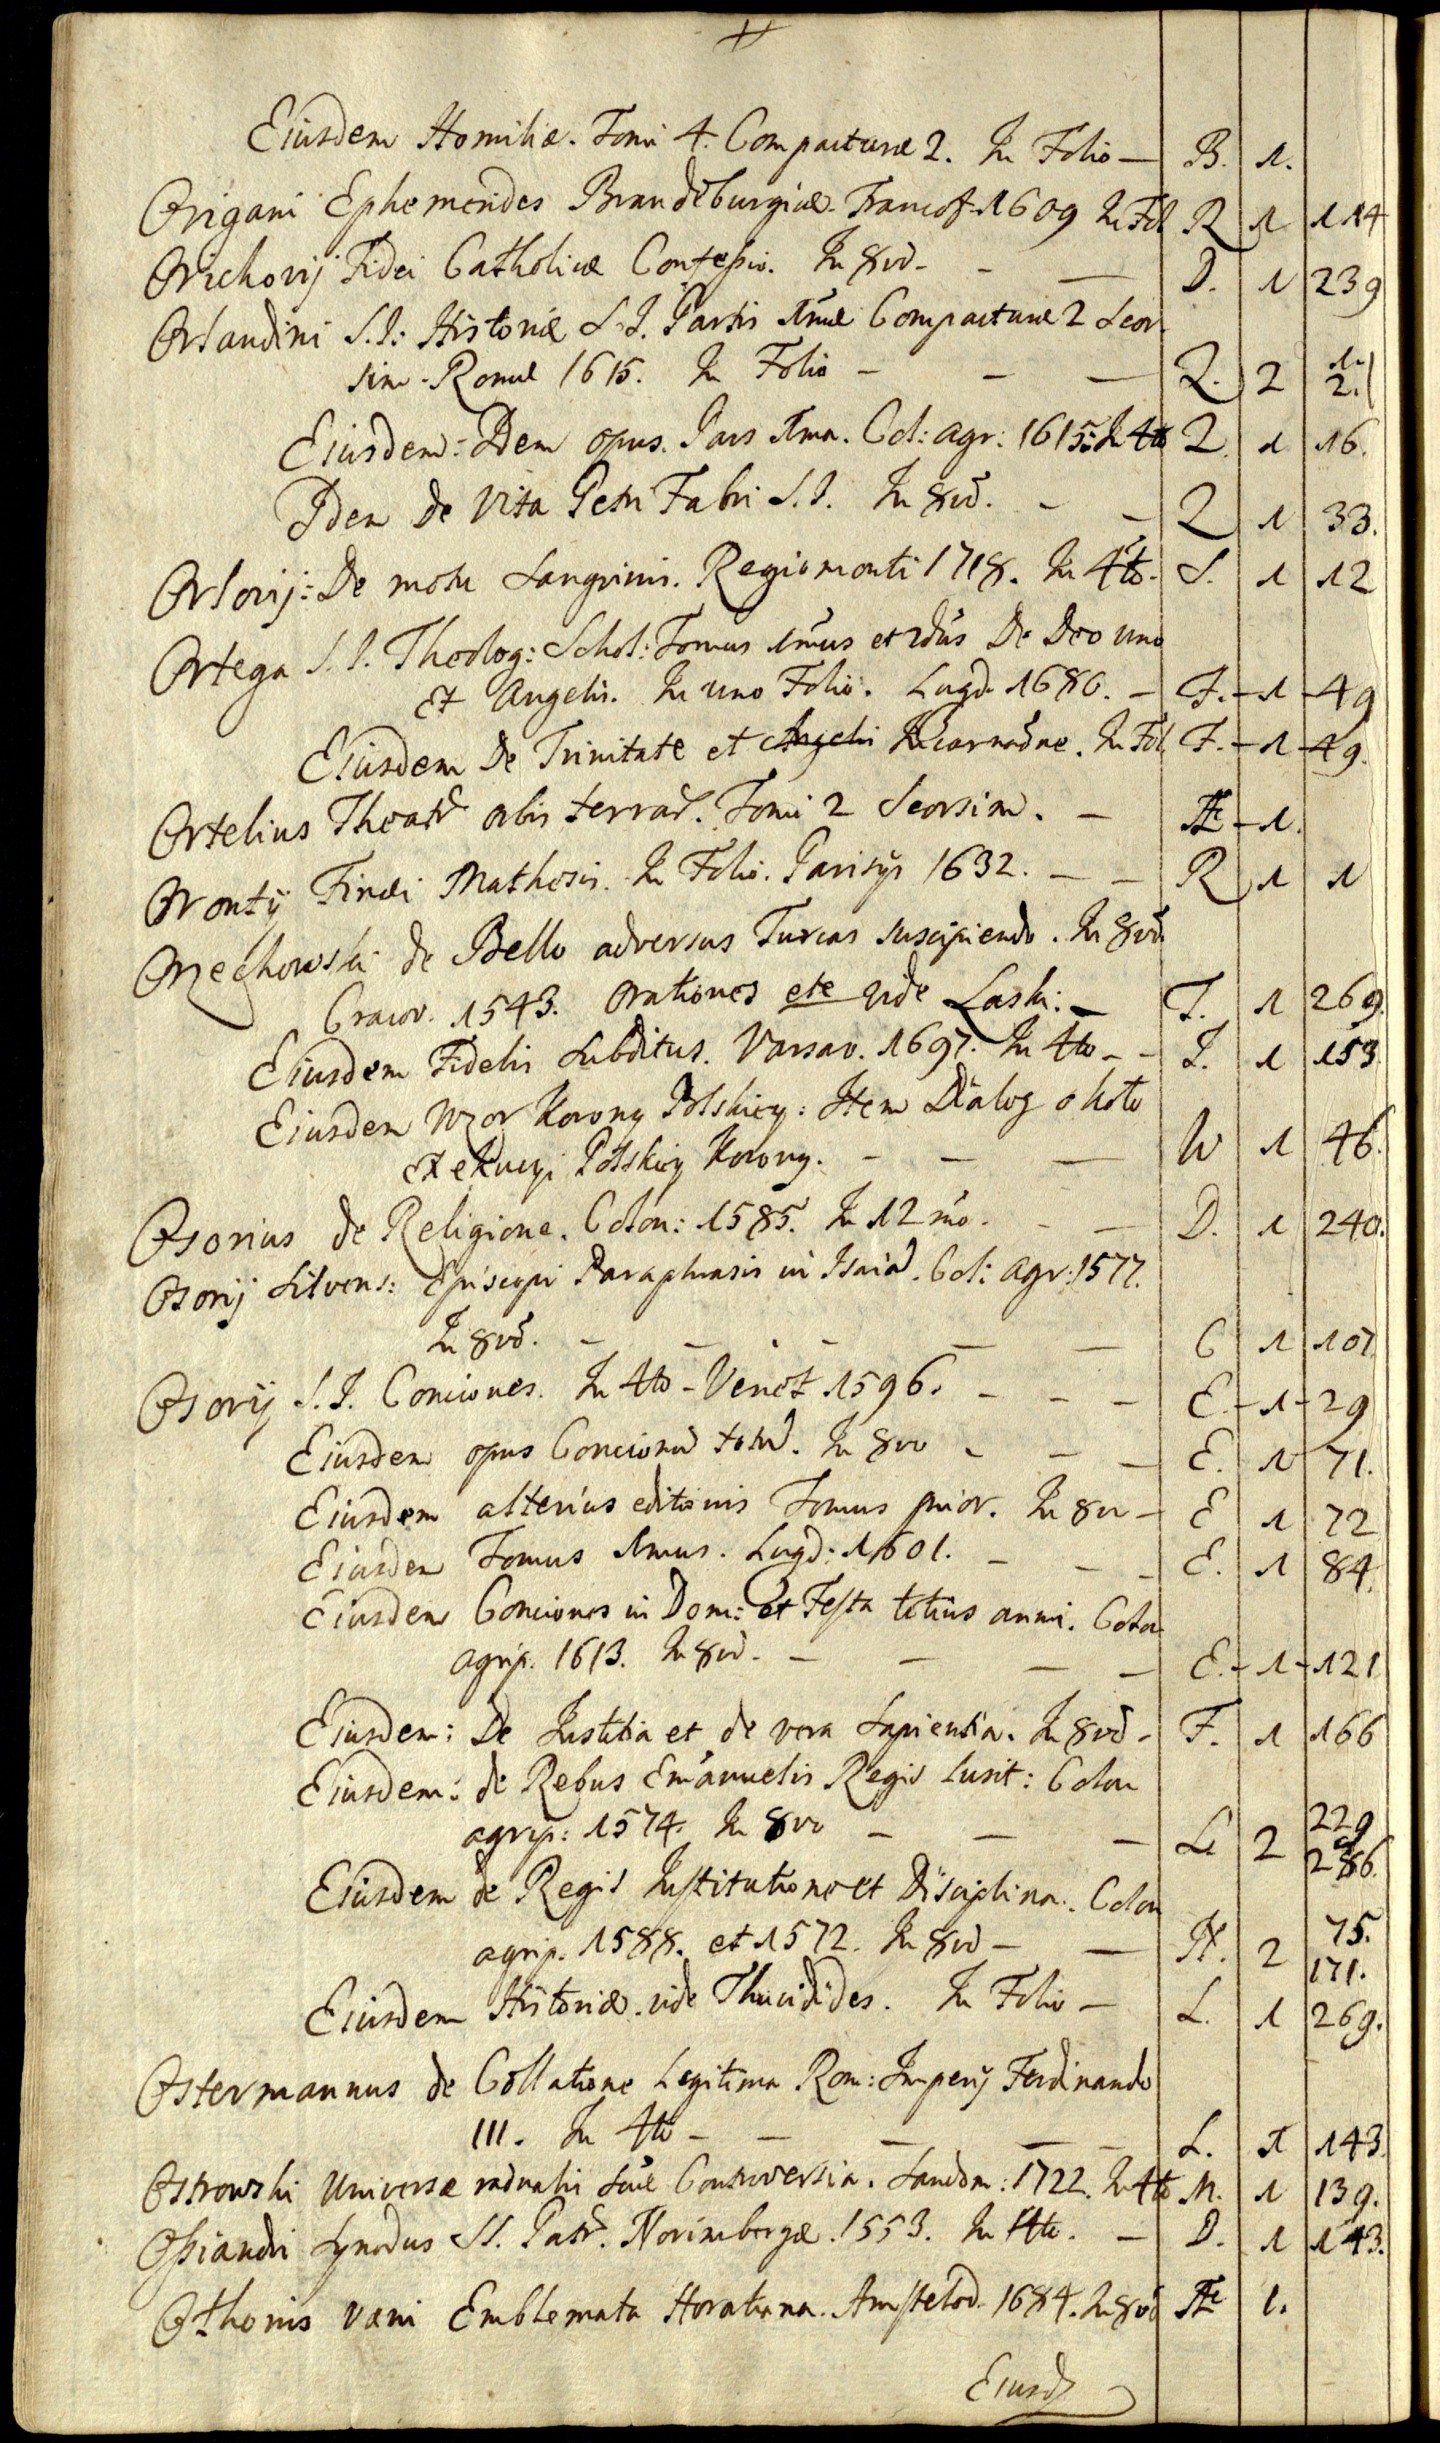 Eiusdem Homiliæ. Tomi 4. Compacturæ 2. In Folio — B. 1.
Origani Ephemerides Brandeburgicæ. Francof. 1609 In Fol R 1 114
Orichovij Fidei Catholicæ Confessio. In 8vo - - — D. 1 239
Orlandini S.I: Historiæ S.I. Partis 1mæ Compacturæ 2 Seor-
sim. Romæ 1615. In Folio - - — Z. 2 1. 2.
Eiusdem: Idem opus. Pars 1ma. Col: agr: 1615. In 4to Z. 1 16.
Idem de Vita Petri Fabri S.I. In 8vo. - - Z 1 33.
Orlovij: De motu Sangvinis. Regiomonti 1718. In 4to - S. 1 12
Ortega S.I. Theolog: Schol: Tomus 1mus et 2dus De Deo uno
Et Angelis. In uno Folio. Lugd. 1680. - F. - 1 - 49
Eiusdem De Trinitate et Angelis Incarnaōne. In Fol F. - 1 - 49.
Ortelius Theatr orbis terrar. Tomi 2 Seorsim. - Æ - 1.
Orontij Finæi Mathesis. In Folio. Parisijs 1632. - - R 1 1
Orzechowski de Bello adversus Turcas suscipiendo. In 8vo
Cracov. 1543. orationes etc vide Laski. - T. 1 269.
Eiusdem Fidelis Subditus. Varsav. 1697. In 4to - - I. 1 153
Eiusdem Wzor Korony Polskiey: Item Dialog około
Exekucyi Polskiey Korony. - - — W 1 46.
Osorius de Religione. Colon: 1585. In 12mo. - — D. 1 240.
Osorij Silvens: Episcopi Paraphrasis in Isaiā. Col: Agr: 1577.
In 8vo. - - - — — C 1 107.
Osorij S.I. Conciones. In 4to - Venet 1596. - - - E. - 1 - 29
Eiusdem opus Concionū totū. In 8vo - - — E. 1 71.
Eiusdem alterius editionis Tomus prior. In 8vo - E 1 72
Eiusdem Tomus 1mus. Lugd: 1601. - - - E. 1 84.
Eiusdem Conciones in Dom: et Festa totius anni. Colon
agrip. 1613. In 8vo. - - - - E. - 1 - 121
Eiusdem: De Iustitia et de vera Sapientia. In 8vo - F. 1 166
Eiusdem: de Rebus Emanuelis Regis Lusit: Colon
agrip: 1574. In 8vo - — — L 2 229 et 286.
Eiusdem de Regis Institutione et Disciplina. Colon
agrip. 1588. et 1572. In 8vo - — H. 2 75. 171.
Eiusdem Historiæ. vide Thucidides. In Folio - L. 1 269.
Ostermannus de Collatione Legitima Rom: Imperij Ferdinando
III. In 4to - - — — - L. 1 143
Ostrowski Universæ radualis suæ Controversia. Sandom: 1722. In 4to M. 1 139.
Osiandri Synodus SS. Patr. Norimbergæ. 1553. In 4to. - D. 1 143.
Othonis væni Emblemata Horatiana. Amstelod. 1684. In 8vo Æ 1.
Eiusd